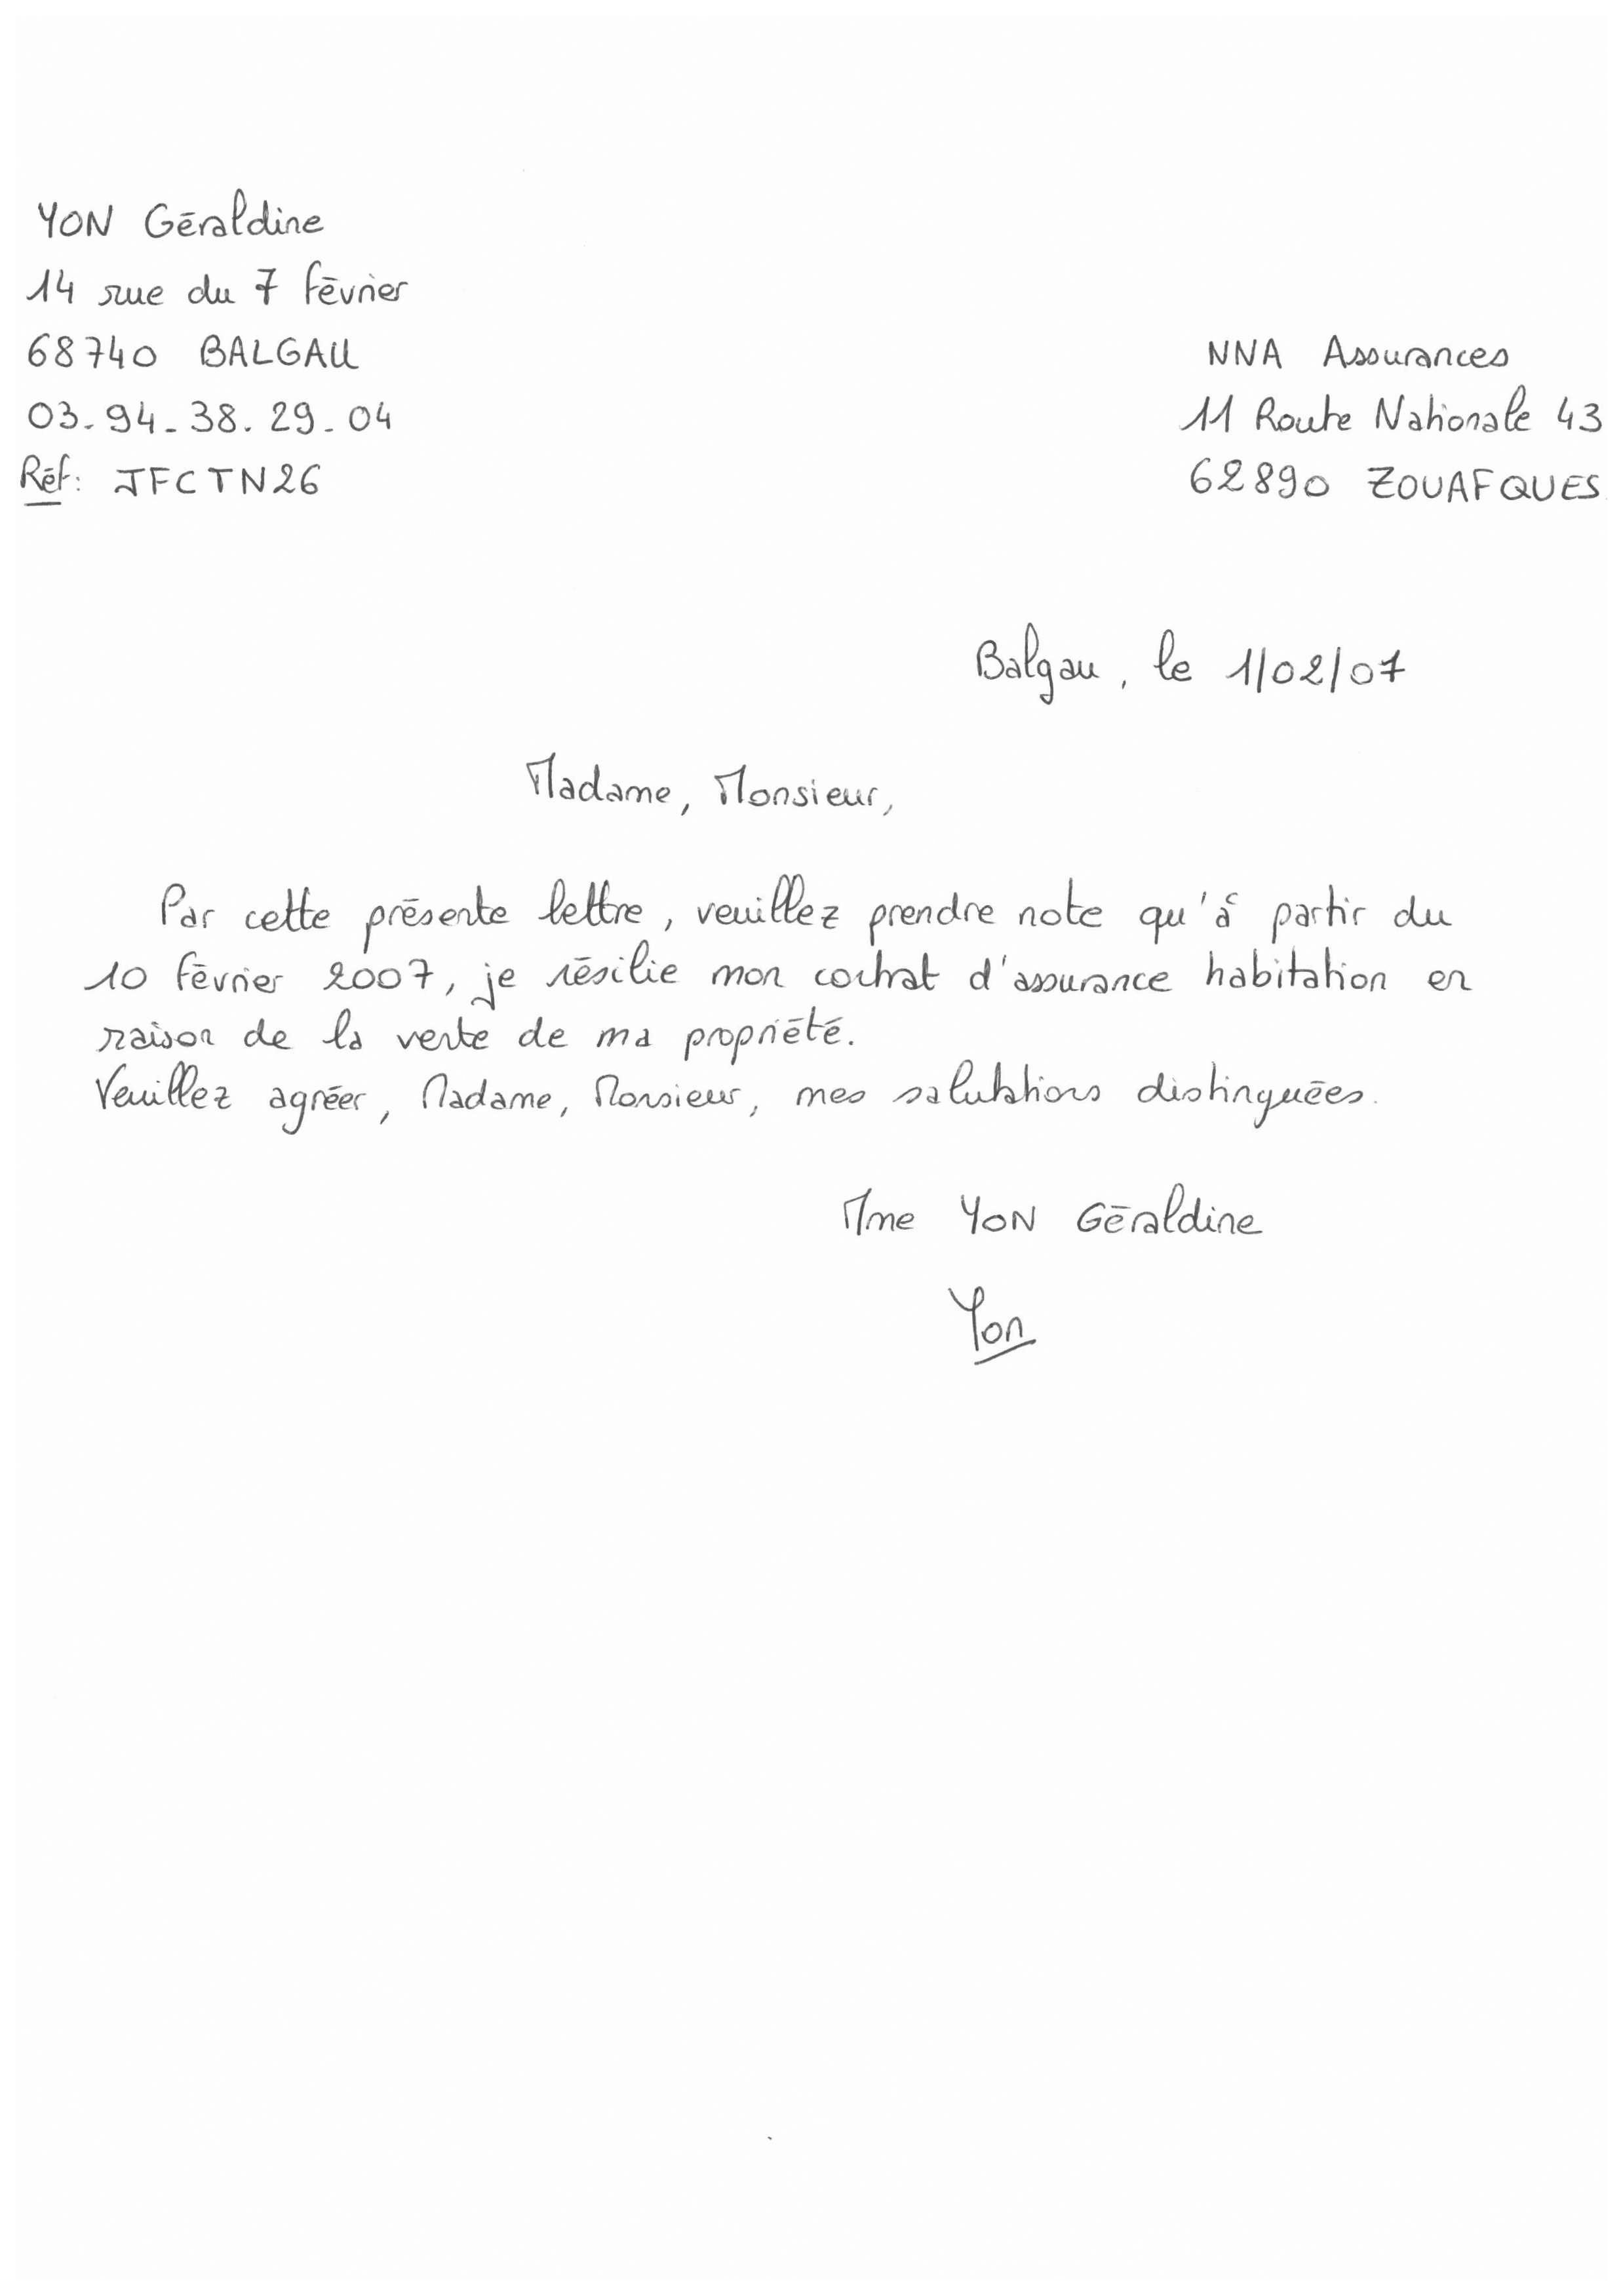 YON Géraldine
14 rue du 7 février
68740 BALGAU
03.94.38.29.04
Réf: JFCTN26
NNA Assurances
11 Route Nationale 43
62890 ZOUAFQUES
Balgau, le 1/02/07
Madame, Monsieur,
Par cette présente lettre, veuillez prendre note qu'à partir du
10 février 2007, je résilie mon contrat d'assurance habitation en
raison de la vente de ma propriété.
Veuillez agréer, Madame, Monsieur, mes salutations distinguées.
Mme YON Géraldine
Yon